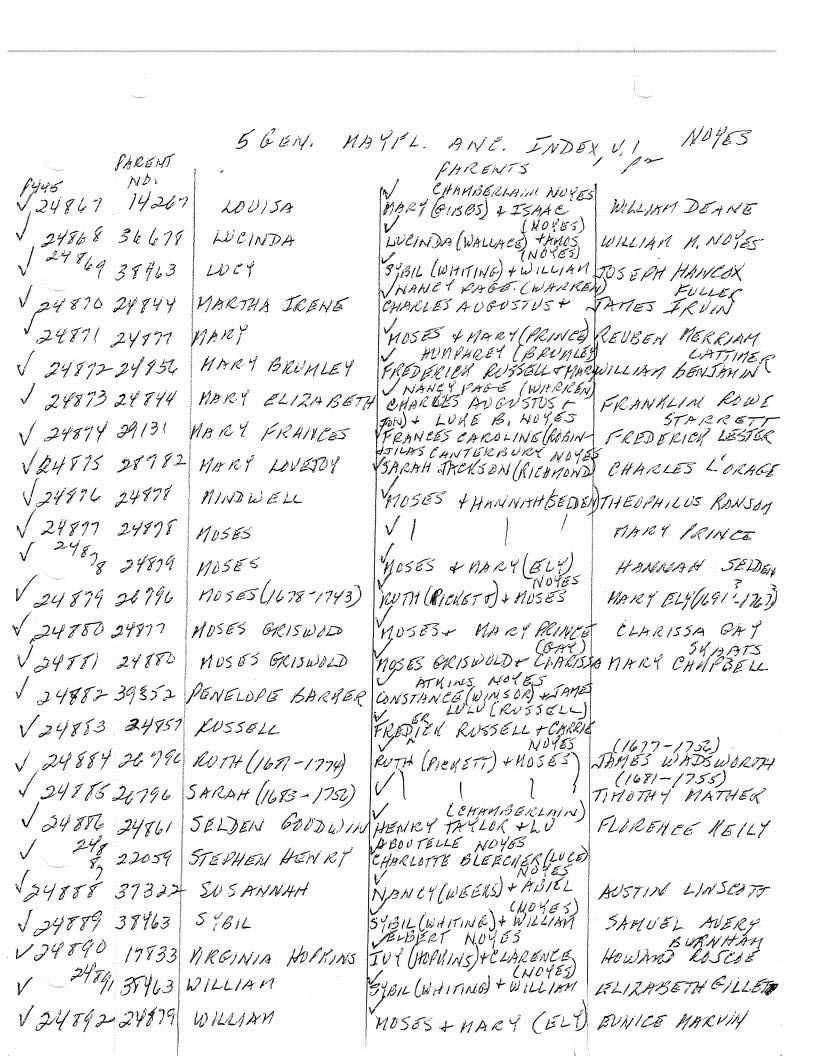 5 GEN. MAYFL. ANC. INDEX, V. 1, NOYES
PARENT NO. PARENTS
✓ 24867 14267 LOUISA CHAMBERLAIN NOYES
MARY (GIBBS) & ISAAC WILLIAM DEANE
(NOYES)
✓ 24868 36678 LUCINDA LUCINDA (WALLACE) & AMOS WILLIAM M. NOYES
(NOYES)
✓ 24869 38463 LUCY SYBIL (WHITING) & WILLIAM JOSEPH HANCOX
✓ NANCY PAGE (WARREN) FULLER
✓ 24870 24844 MARTHA IRENE CHARLES AUGUSTUS & JAMES IRVIN
✓ 24871 24877 MARY MOSES & MARY (PRINCE) REUBEN MERRIAM
✓ HUMPHREY (BRUMLEY) LATTIMER
✓ 24872 24856 MARY BRUMLEY FREDERICK RUSSELL & MARY WILLIAM BENJAMIN
✓ NANCY PAGE (WARREN)
✓ 24873 24844 MARY ELIZABETH CHARLES AUGUSTUS & FRANKLIN ROWE
SON) & LUKE B. NOYES STARRETT
✓ 24874 29131 MARY FRANCES FRANCES CAROLINE (ROBIN- FREDERICK LESTER
& SILAS CANTERBURY NOYES
✓ 24875 28782 MARY LOVEJOY SARAH JACKSON (RICHMOND) CHARLES L'ORAGE
✓ 24876 24878 MINDWELL MOSES & HANNAH (SELDEN) THEOPHILUS RANSOM
✓ 24877 24878 MOSES ✓ | | / MARY PRINCE
✓ 24878 24879 MOSES MOSES & MARY (ELY) HANNAH SELDEN
NOYES ? ?
✓ 24879 26796 MOSES (1678-1743) RUTH (PICKETT) & MOSES MARY ELY (1691-1763)
✓ 24880 24877 MOSES GRISWOLD MOSES & MARY PRINCE CLARISSA GAY
(GAY) SKAATS
✓ 24881 24880 MOSES GRISWOLD MOSES GRISWOLD & CLARISSA MARY CAMPBELL
✓ ATKINS NOYES
✓ 24882 39352 PENELOPE BARKER CONSTANCE (WINSOR) & JAMES
✓ ER LULU (RUSSELL)
✓ 24883 24857 RUSSELL FREDICK RUSSELL & CARRIE
NOYES (1677-1756)
✓ 24884 26796 RUTH (1681-1774) RUTH (PICKETT) & MOSES JAMES WADSWORTH
(1681-1755)
✓ 24885 26796 SARAH (1683-1756) ✓ | | | TIMOTHY MATHER
(CHAMBERLAIN)
✓ 24886 24861 SELDEN GOODWIN HENRY TAYLOR & LU FLORENCE KEILY
ABOUTELLE NOYES
✓ 24887 22059 STEPHEN HENRY CHARLOTTE BLEECHER (LUCE)
NOYES
✓ 24888 37322 SUSANNAH NANCY (WEEKS) & ABIEL AUSTIN LINSCOTT
(NOYES)
✓ 24889 38463 SYBIL SYBIL (WHITING) & WILLIAM SAMUEL AVERY
✓ ELBERT NOYES BURNHAM
✓ 24890 17833 VIRGINIA HOPKINS IVY (HOPKINS) & CLARENCE HOWARD ROSCOE
(NOYES)
✓ 24891 38463 WILLIAM SYBIL (WHITING) & WILLIAM ELIZABETH GILLET
✓ 24892 24879 WILLIAM MOSES & MARY (ELY) EUNICE MARVIN